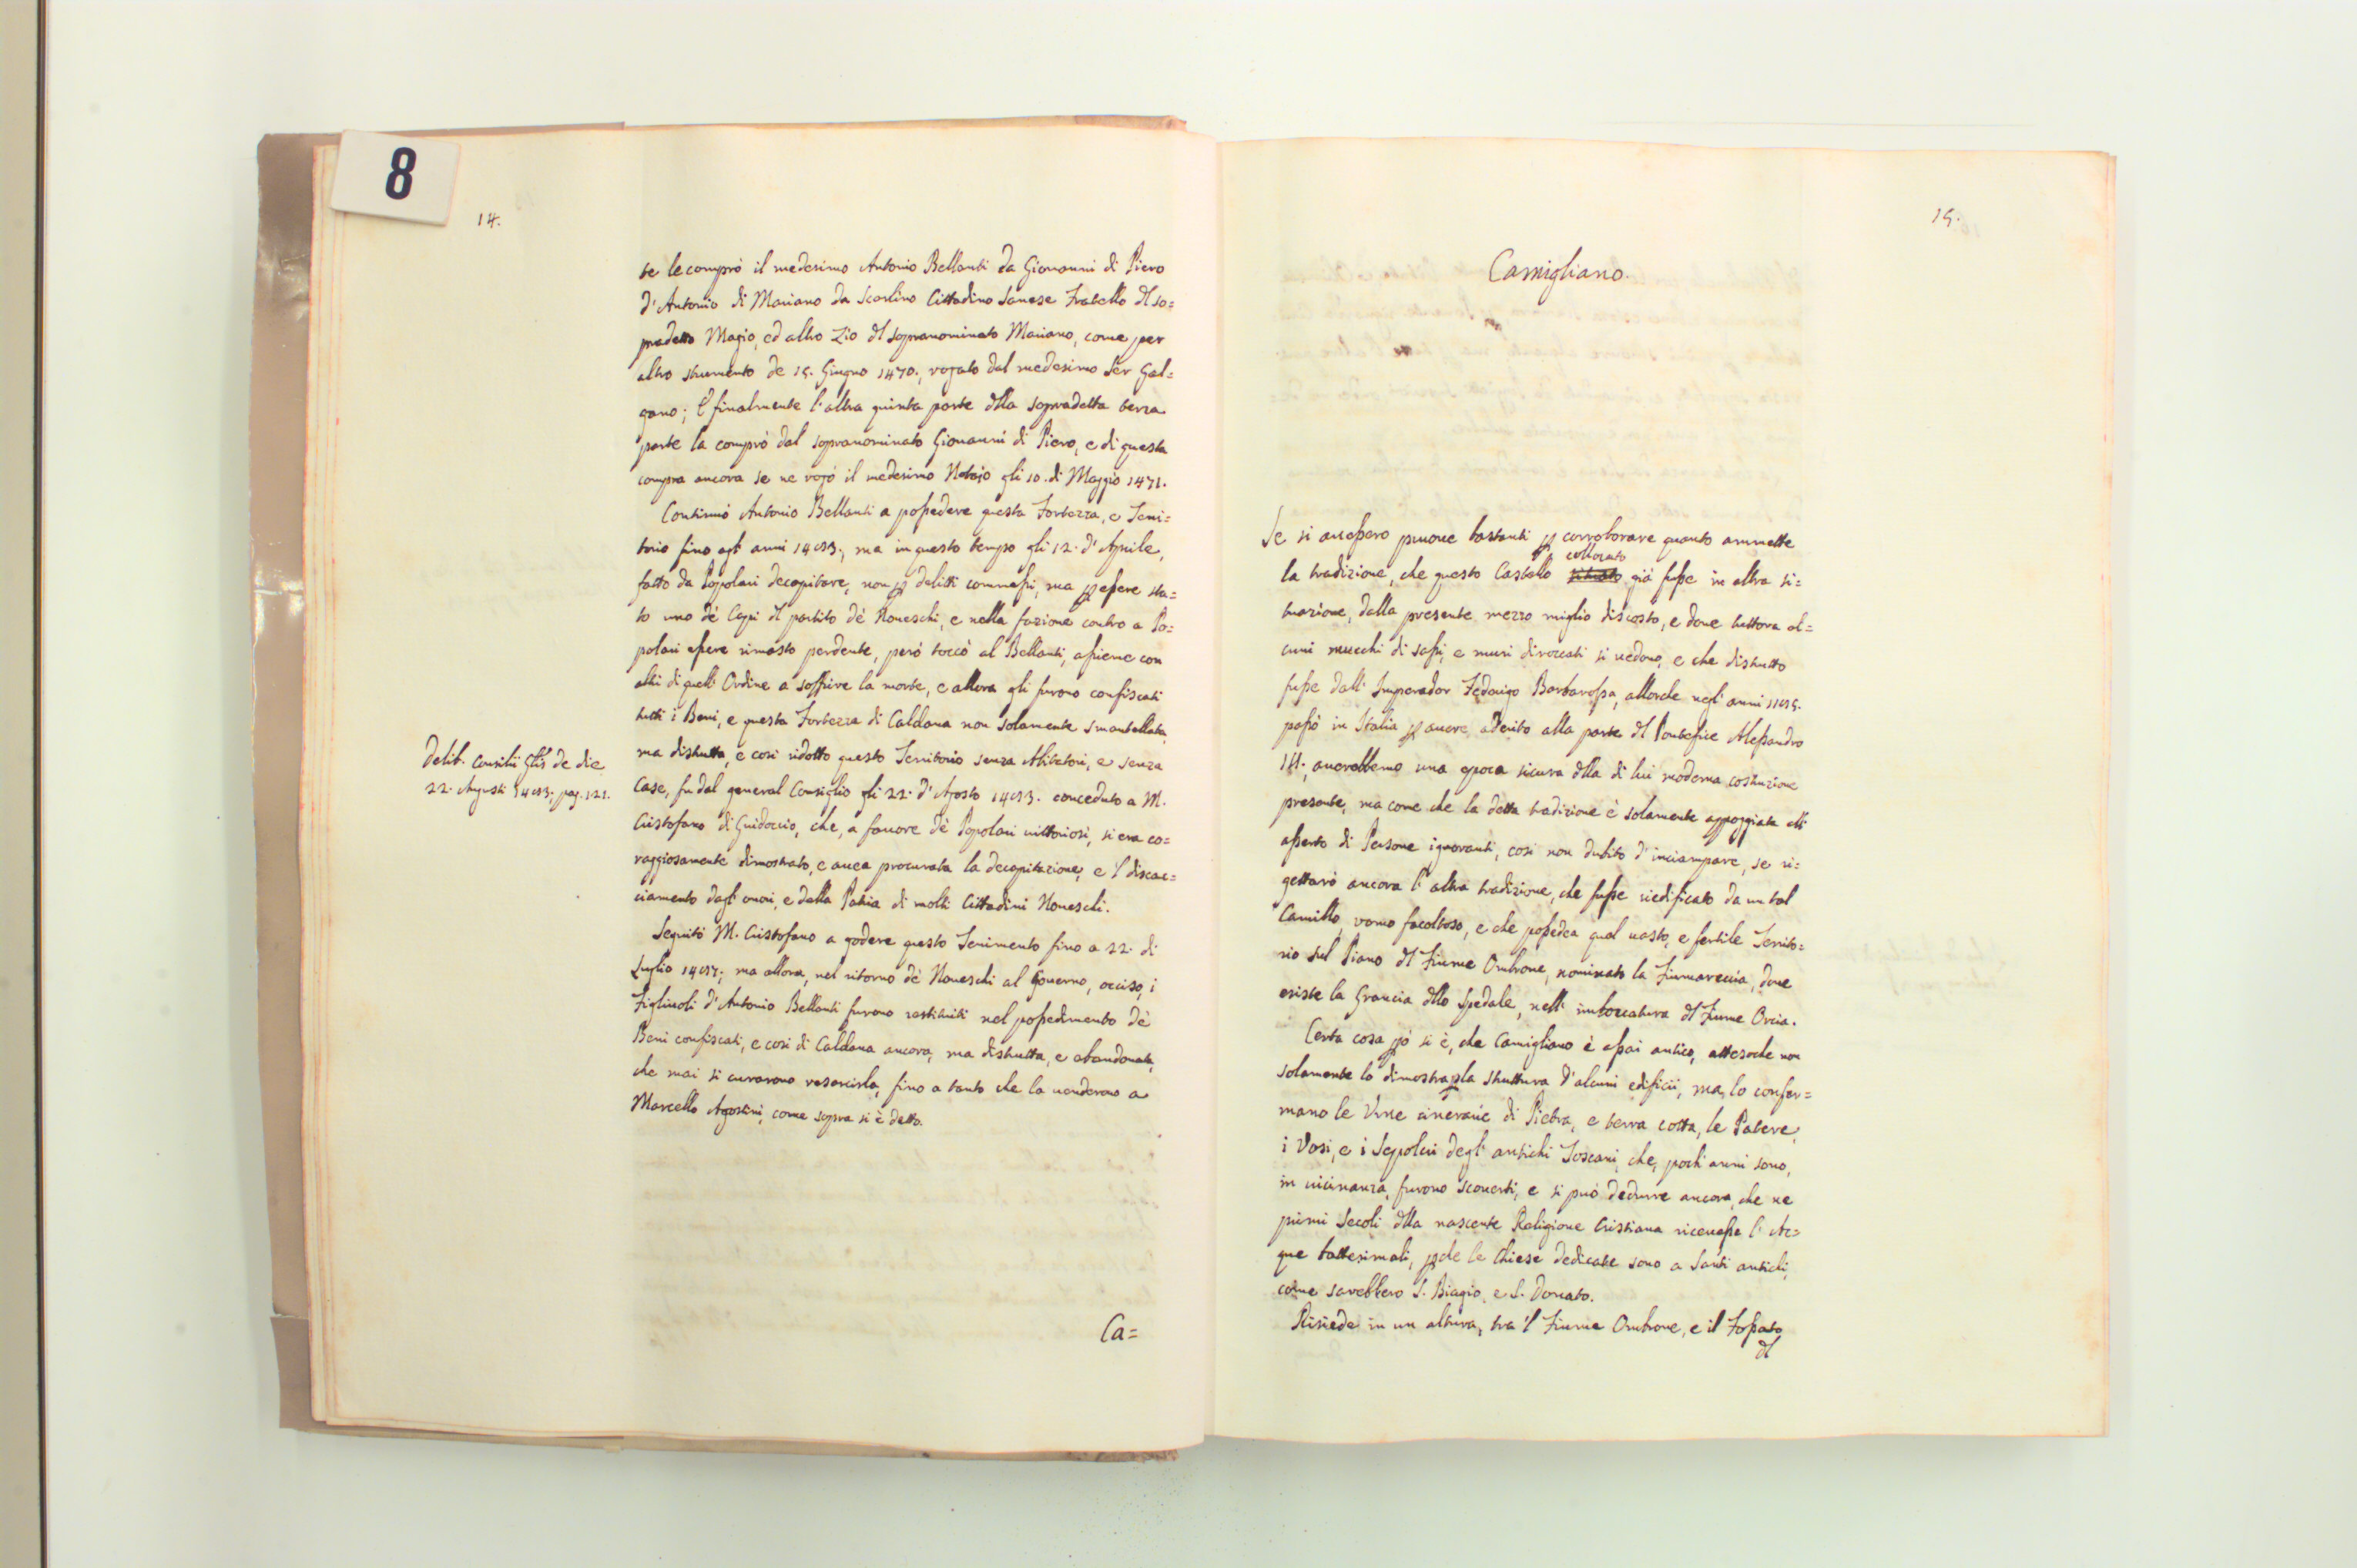 8
14.
te le comprò il medesimo Antonio Bellanti da Giovanni di Piero
d'Antonio di Mariano da Scarlino Cittadino Sanese Fratello dl so=
pradetto Magio, ed altro Zio dl sopranominato Mariano, come per
altro strumento de 15. Giugno 1470., rogato dal medesimo Ser Gal=
gano; E finalmente l'altra quinta parte dlla sopradetta terza
parte la comprò dal sopranominato Giovanni di Piero, e di questa
compra ancora se ne rogò il medesimo Notajo gli 10. di Maggio 1471.
Continuò Antonio Bellanti a possedere questa Fortezza, e Terri=
torio fino agl' anni 1483., ma in questo tempo gli 12. d'Aprile,
fatto da Popolari decapitare, non p delitti commessi, ma p essere sta=
to uno dè Capi dl partito dè Noveschi, e nella fazione contro a Po=
polari essere rimasto perdente, però toccò al Bellanti, assieme con
altri di quell' Ordine a soffrire la morte, e allora gli furono confiscati
tutti i Beni, e questa Fortezza di Caldana non solamente smantellata,
ma distrutta, e così ridotto questo Territorio senza Abitatori, e senza
Case, fu dal general Consiglio gli 22. d'Agosto 1483. conceduto a M.
Cristofano di Guidoccio, che, a favore dè Popolari vittoriosi, si era co=
raggiosamente dimostrato, e avea procurata la decapitazione, e 'l discac=
ciamento dagl' onori, e dalla Patria di molti Cittadini Noveschi.
Seguitò M. Cristofano a godere questo Tenimento fino a 22. di
Luglio 1487; ma allora, nel ritorno dè Noveschi al Governo, occiso, i
Figliuoli d'Antonio Bellanti furono restituiti nel possedimento dè
Beni confiscati, e così di Caldana ancora, ma distrutta, e abandonata,
che mai si curarono resarcirla, fino a tanto che la venderono a
Marcello Agostini, come sopra si è detto.
Delib. Consilii Glis de die
22. Augusti 1483. pag. 121.
Ca=
15.
Camigliano.
Se si avessero pruove bastanti p corroborare quanto ammette
la tradizione, che questo Castello collocato già fusse in altra si=
tuazione, dalla presente mezzo miglio discosto, e dove tuttora al=
cuni mucchi di sassi, e muri diroccati si vedono, e che distrutto
fusse dall' Imperador Federigo Barbarossa, allorche negl' anni 1185.
passò in Italia p avere aderito alla parte dl Pontefice Alessandro
III., averebbemo una epoca sicura dlla di lui moderna costruzione
presente, ma come che la detta tradizione è solamente appoggiata all'
asserto di Persone ignoranti, così non dubito d'inciampare, se ri=
gettarò ancora l'altra tradizione, che fusse riedificato da un tal
Camillo, uomo facoltoso, e che possedea quel vasto, e fertile Territo=
rio sul Piano dl Fiume Ombrone, nominato la Fiumareccia, dove
esiste la Grancia dllo Spedale, nell' imboccatura dl Fiume Orcia.
Certa cosa pò si è, che Camigliano è assai antico, attesoche non
solamente lo dimostra pla struttura d'alcuni edificii, ma lo confer=
mano le Urne cinerarie di Pietra, e terra cotta, le Patere,
i Vasi, e i Sepolcri degl' antichi Toscani, che, pochi anni sono,
in vicinanza, furono scoverti, e si può dedurre ancora, che ne
primi Secoli dlla nascente Religione Cristiana ricevesse l' Ac=
que battesimali, pche le Chiese dedicate sono a Santi antichi,
come sarebbero S. Biagio, e S. Donato.
Risiede in un altura, tra 'l Fiume Ombrone, e il Fossato
dl